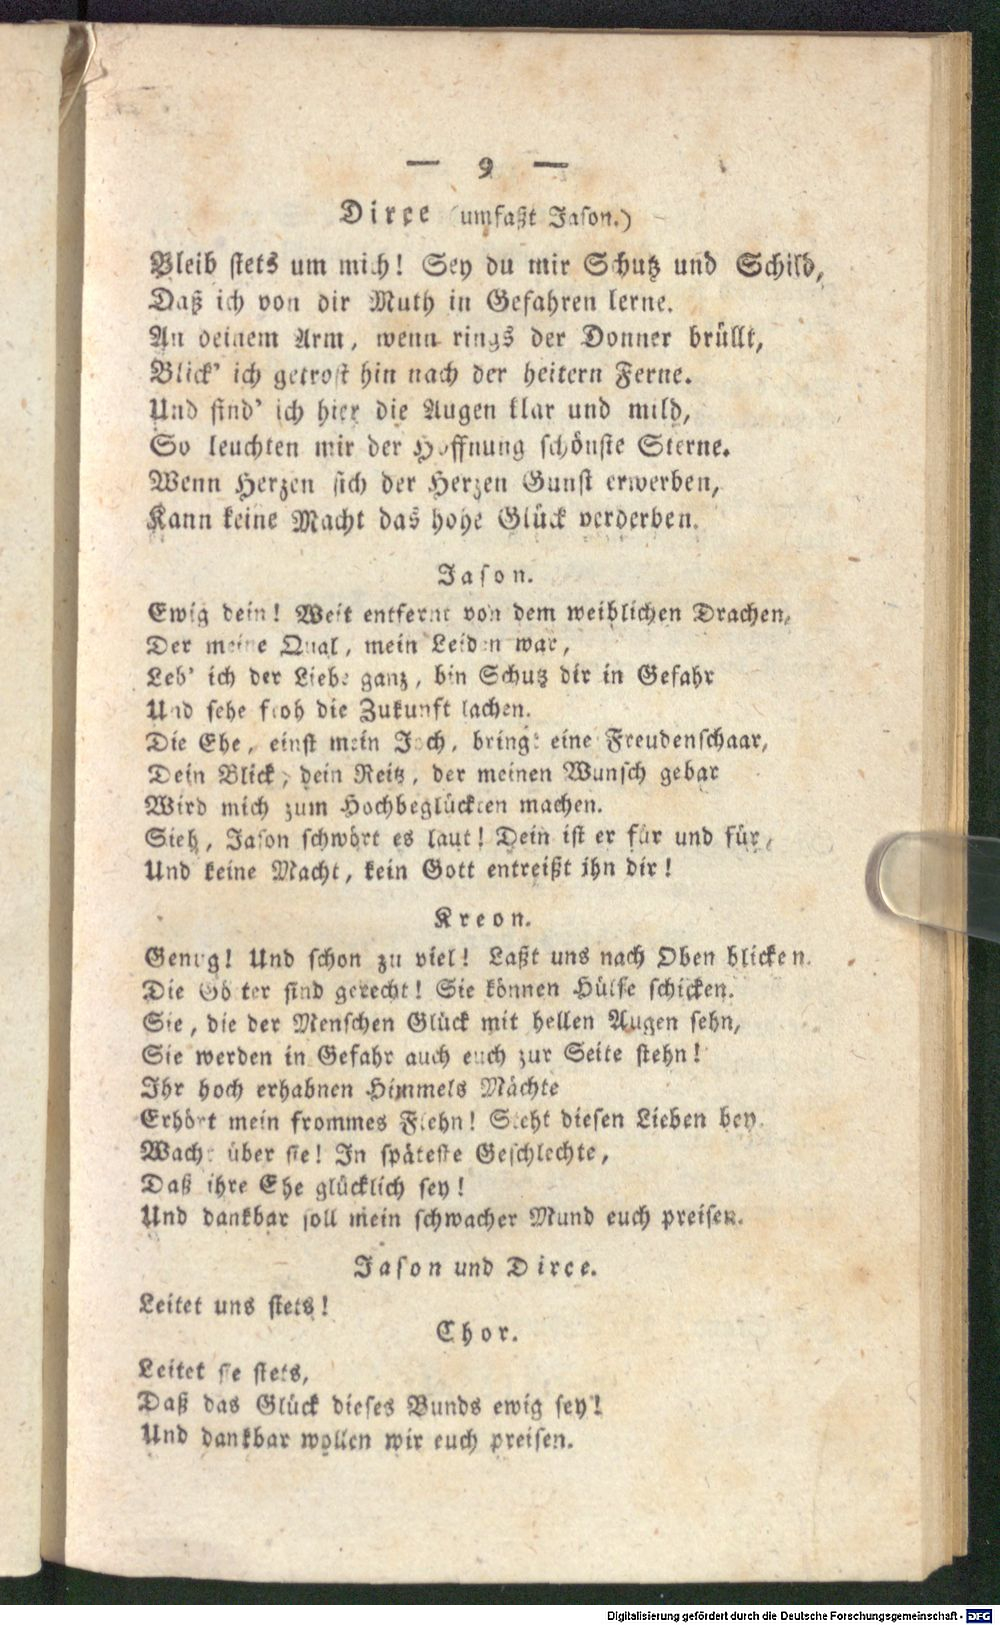 — 9 —
Dirce (umfaßt Jason.)
Bleib stets um mich! Sey du mir Schutz und Schild,
Daß ich von dir Muth in Gefahren lerne.
An deinem Arm, wenn rings der Donner brüllt,
Blick' ich getrost hin nach der heitern Ferne.
Und find' ich hier die Augen klar und mild,
So leuchten mir der Hoffnung schönste Sterne.
Wenn Herzen sich der Herzen Gunst erwerben,
Kann keine Macht das hohe Glück verderben.
Jason.
Ewig dein! Weit entfernt von dem weiblichen Drachen,
Der meine Qual, mein Leiden war,
Leb' ich der Liebe ganz, bin Schutz dir in Gefahr
Und sehe froh die Zukunft lachen.
Die Ehe, einst mein Joch, bringt eine Freudenschaar,
Dein Blick, dein Reitz, der meinen Wunsch gebar
Wird mich zum Hochbeglückten machen.
Sieh, Jason schwört es laut! Dein ist er für und für,
Und keine Macht, kein Gott entreißt ihn dir!
Kreon.
Genug! Und schon zu viel! Laßt uns nach Oben blicken.
Die Götter sind gerecht! Sie können Hülfe schicken.
Sie, die der Menschen Glück mit hellen Augen sehn,
Sie werden in Gefahr auch euch zur Seite stehn!
Ihr hoch erhabnen Himmels Mächte
Erhört mein frommes Flehn! Steht diesen Lieben bey.
Wacht über sie! In späteste Geschlechte,
Daß ihre Ehe glücklich sey!
Und dankbar soll mein schwacher Mund euch preisen.
Jason und Dirce.
Leitet uns stets!
Chor.
Leitet sie stets,
Daß das Glück dieses Bunds ewig sey!
Und dankbar wollen wir euch preisen.
Digitalisierung gefördert durch die Deutsche Forschungsgemeinschaft - DFG